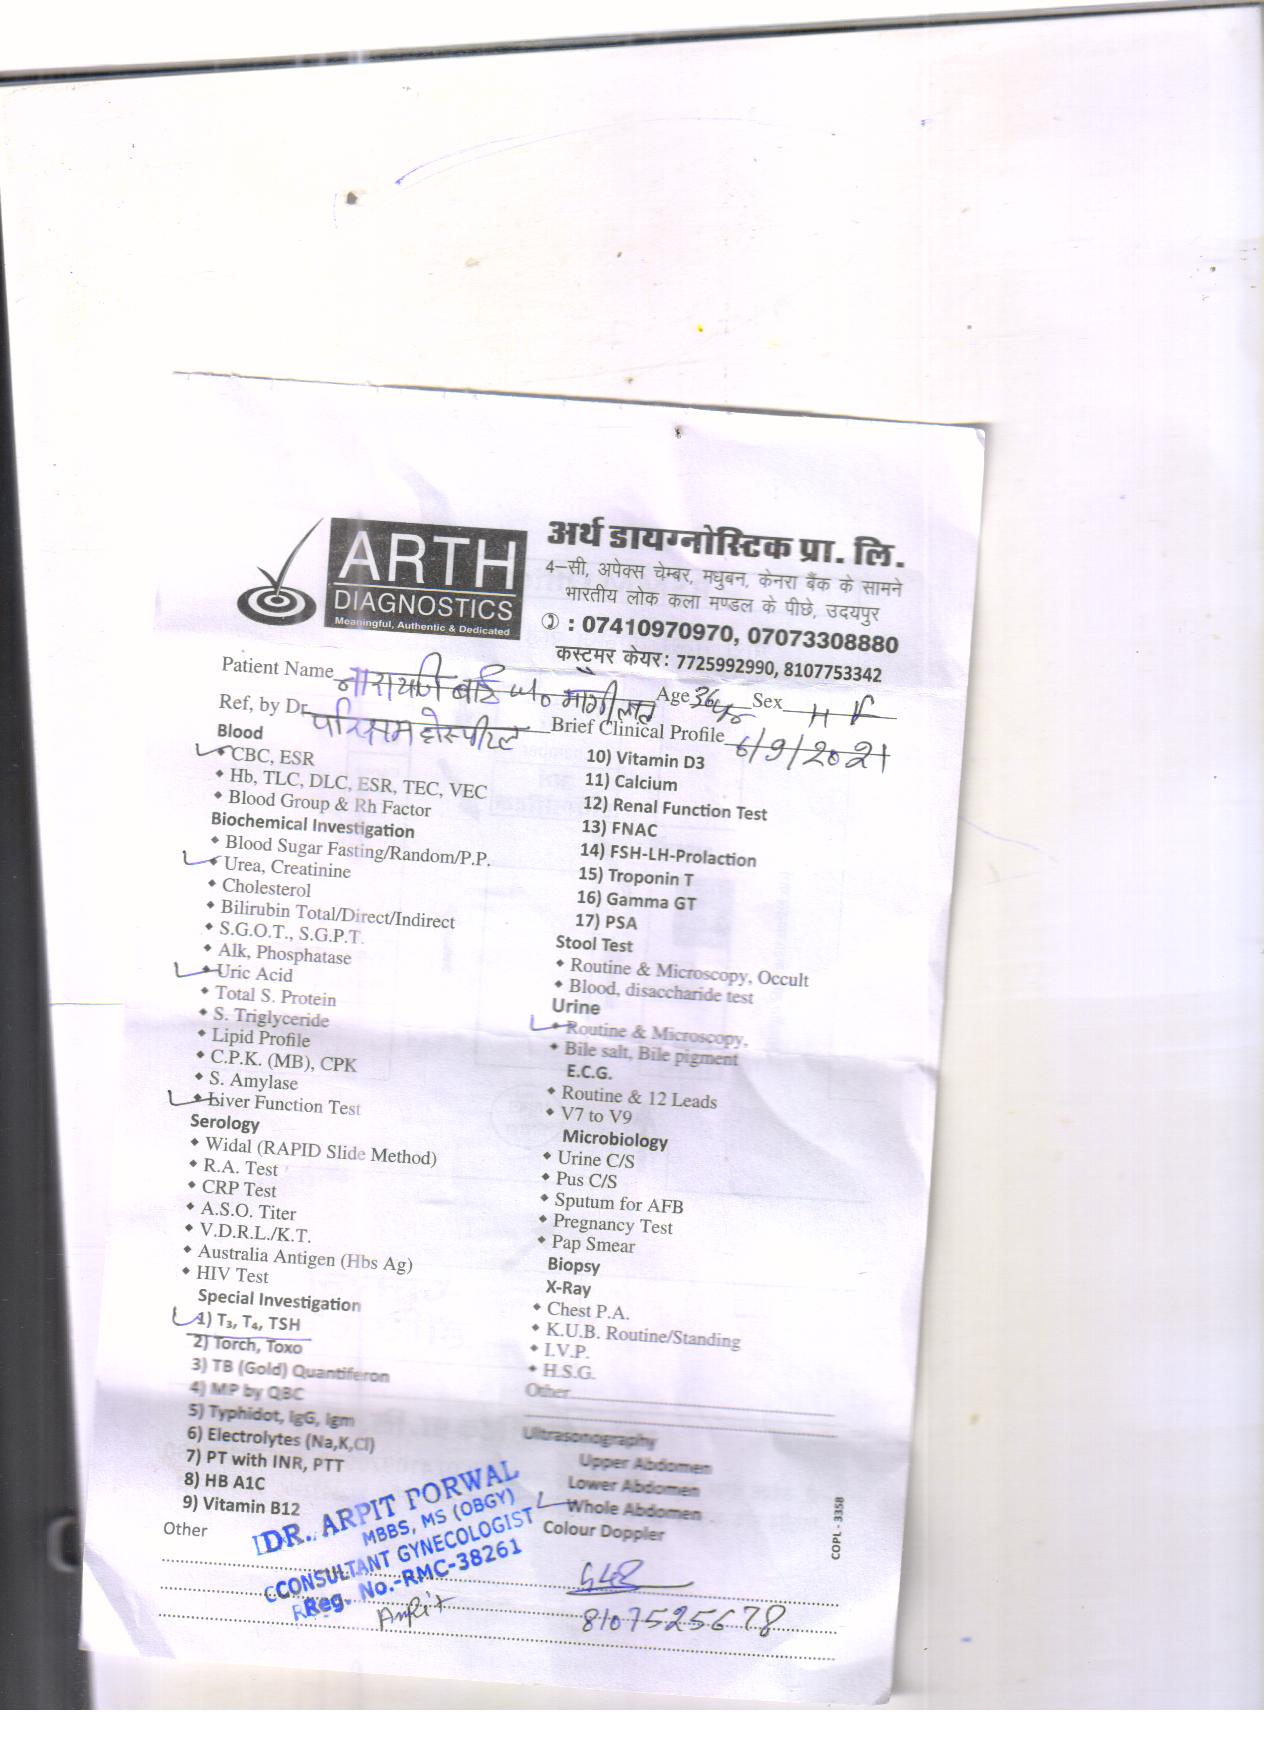 ARTH
DIAGNOSTICS
Meaningful, Authentic & Dedicated
अर्थ डायग्नोस्टिक प्रा. लि.
4–सी, अपेक्स चेम्बर, मधुबन, केनरा बैंक के सामने
भारतीय लोक कला मण्डल के पीछे, उदयपुर
: 07410970970, 07073308880
कस्टमर केयर: 7725992990, 8107753342
Patient Name नारायणि बाई w/o मांगीलाल Age 36 Sex F
Ref, by Dr. हॉस्पीटल Brief Clinical Profile 6/9/2021
Blood
CBC, ESR
Hb, TLC, DLC, ESR, TEC, VEC
Blood Group & Rh Factor
Biochemical Investigation
Blood Sugar Fasting/Random/P.P.
Urea, Creatinine
Cholesterol
Bilirubin Total/Direct/Indirect
S.G.O.T., S.G.P.T.
Alk, Phosphatase
Uric Acid
Total S. Protein
S. Triglyceride
Lipid Profile
C.P.K. (MB), CPK
S. Amylase
Liver Function Test
Serology
Widal (RAPID Slide Method)
R.A. Test
CRP Test
A.S.O. Titer
V.D.R.L./K.T.
Australia Antigen (Hbs Ag)
HIV Test
Special Investigation
1) T3, T4, TSH
2) Torch, Toxo
3) TB (Gold) Quantiferon
4) MP by QBC
5) Typhidot, IgG, Igm
6) Electrolytes (Na,K,Cl)
7) PT with INR, PTT
8) HB A1C
9) Vitamin B12
Other
10) Vitamin D3
11) Calcium
12) Renal Function Test
13) FNAC
14) FSH-LH-Prolaction
15) Troponin T
16) Gamma GT
17) PSA
Stool Test
Routine & Microscopy, Occult
Blood, disaccharide test
Urine
Routine & Microscopy,
Bile salt, Bile pigment
E.C.G.
Routine & 12 Leads
V7 to V9
Microbiology
Urine C/S
Pus C/S
Sputum for AFB
Pregnancy Test
Pap Smear
Biopsy
X-Ray
Chest P.A.
K.U.B. Routine/Standing
I.V.P.
H.S.G.
Other
Ultrasonography
Upper Abdomen
Lower Abdomen
Whole Abdomen
Colour Doppler
COPL - 3358
DR. ARPIT PORWAL
MBBS, MS (OBGY)
CONSULTANT GYNECOLOGIST
Reg. No.-RMC-38261
8107525678